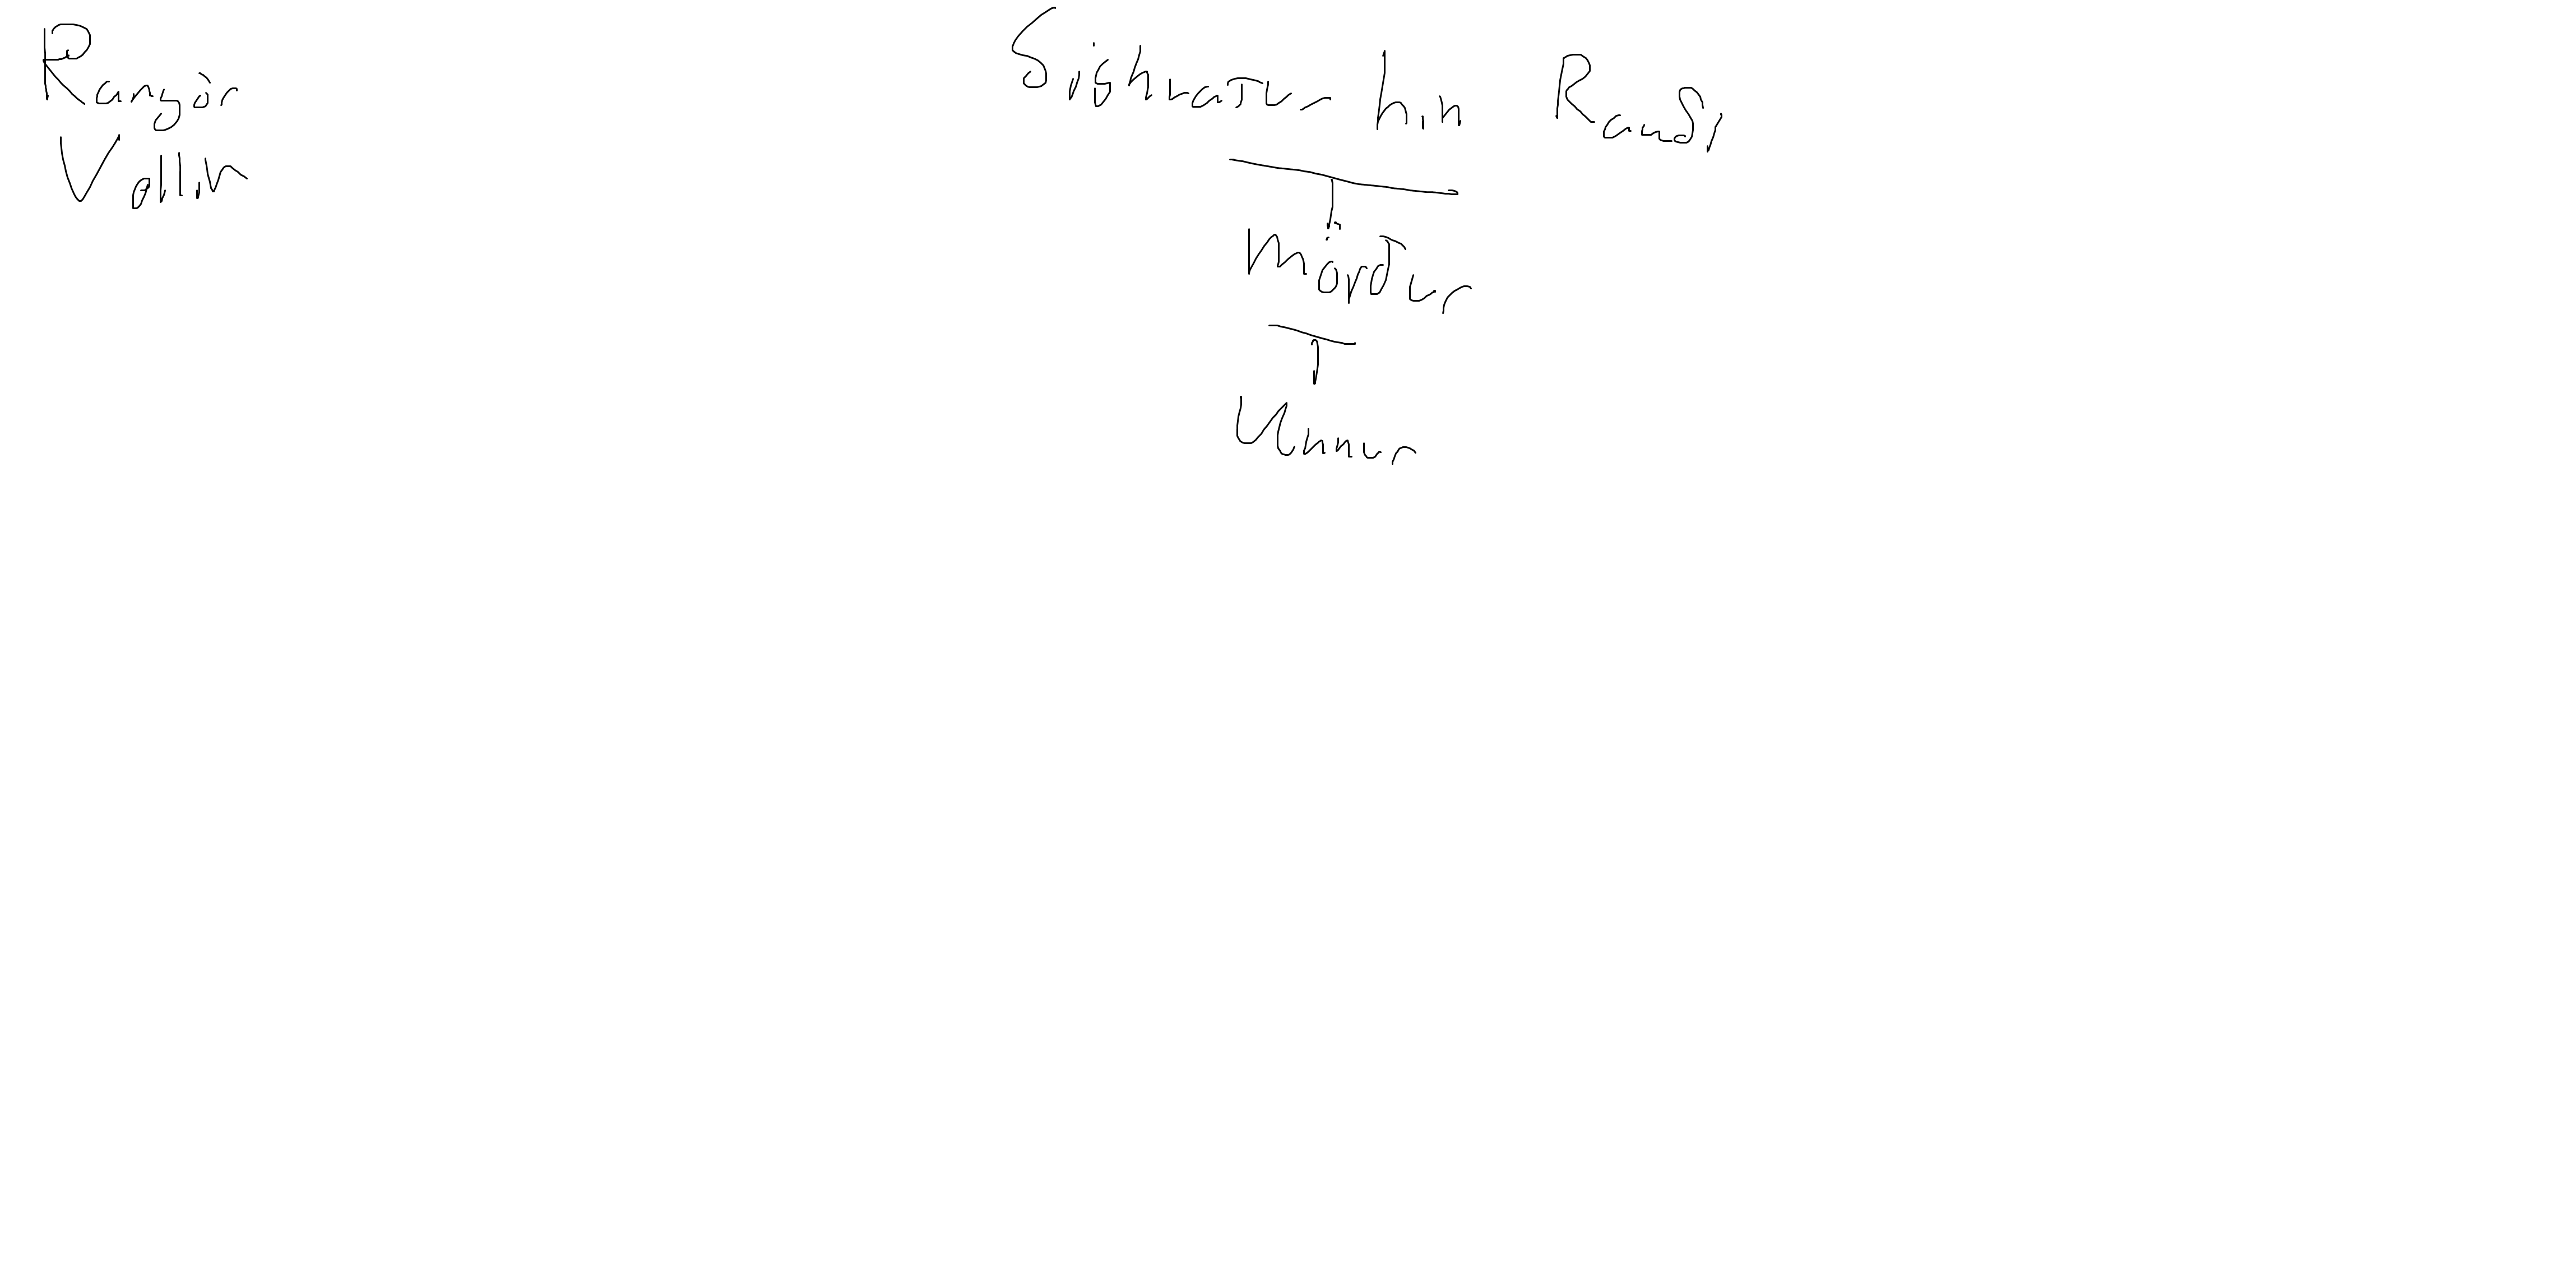 Rangár
Vellir
Sighvatur hin Rauði
Mörður
Unnur